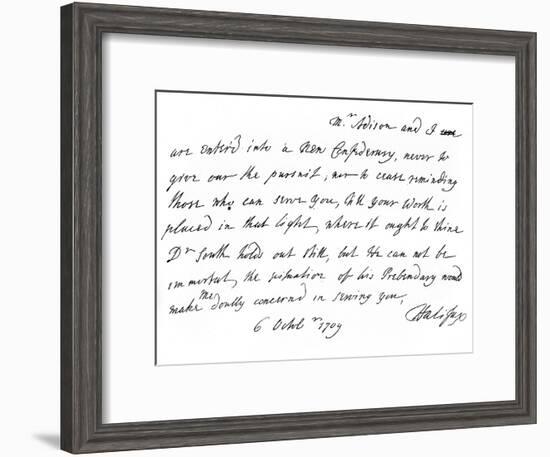 Mr. Adison and I are
are enter'd into a New Confederacy, never to
give over the pursuit, nor to cease reminding
those who can serve you, till your worth is
placed in that light, where it ought to shine
Dr South holds out still, but He can not be
immortal, the situation of his Prebendary would
make me doubly concern'd in serving you,
Halifax
6 Octbr 1709